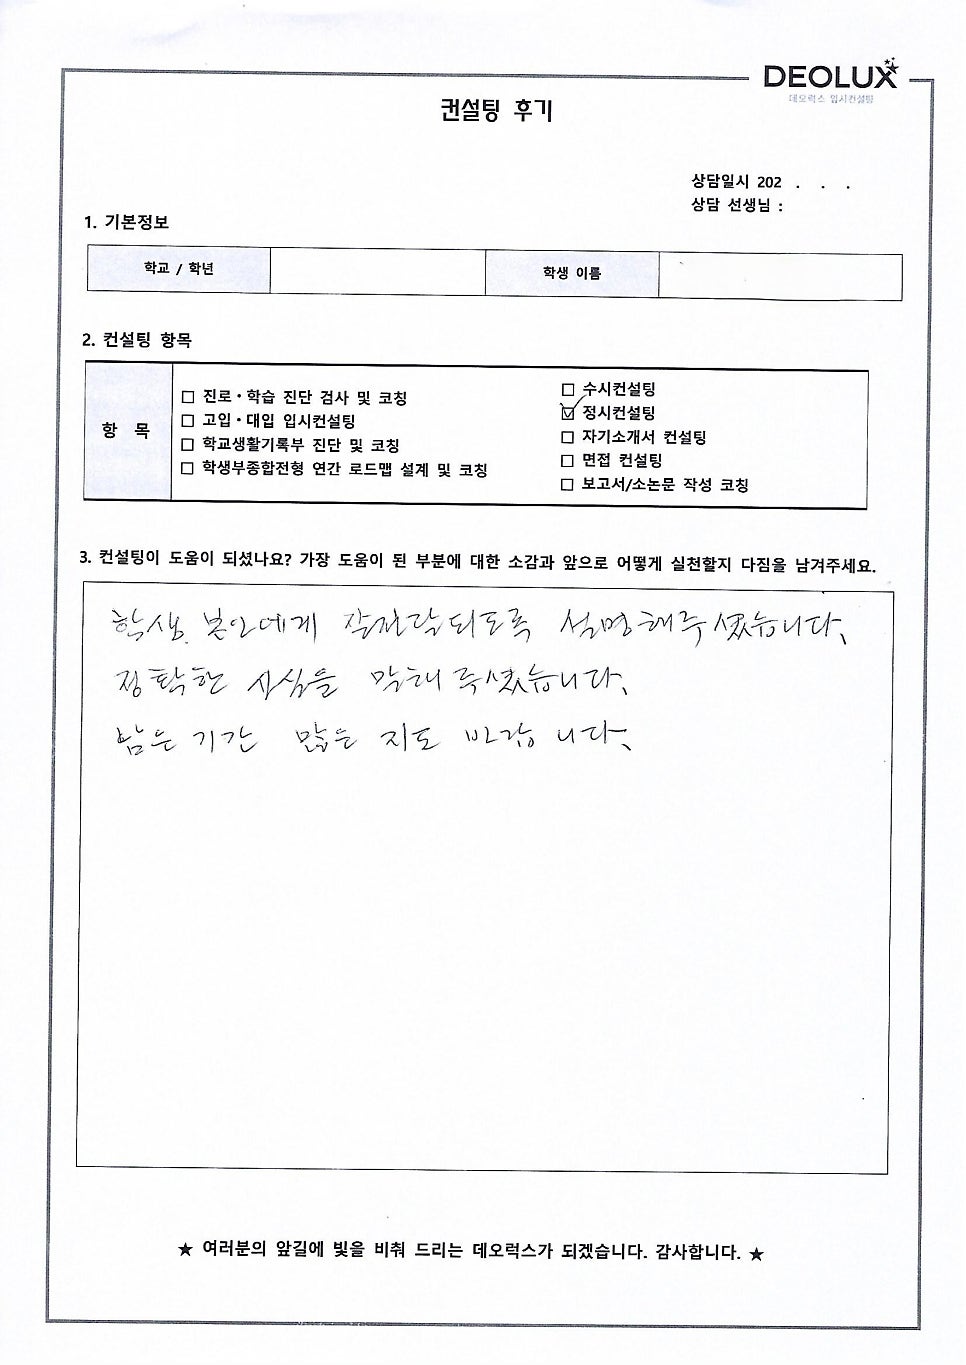 DEOLUX
데오럭스 입시컨설팅
컨설팅 후기
상담일시 202 . . .
상담 선생님 :
1. 기본정보
학교 / 학년 학생 이름
2. 컨설팅 항목
항 목
□ 진로·학습 진단 검사 및 코칭
□ 고입·대입 입시컨설팅
□ 학교생활기록부 진단 및 코칭
□ 학생부종합전형 연간 로드맵 설계 및 코칭
□ 수시컨설팅
☑ 정시컨설팅
□ 자기소개서 컨설팅
□ 면접 컨설팅
□ 보고서/소논문 작성 코칭
3. 컨설팅이 도움이 되셨나요? 가장 도움이 된 부분에 대한 소감과 앞으로 어떻게 실천할지 다짐을 남겨주세요.
학생 본인에게 잘전달되도록 설명해주셨습니다.
정확한 사실을 말해 주셨습니다.
남은 기간 많은 지도 바랍니다.
★ 여러분의 앞길에 빛을 비춰 드리는 데오럭스가 되겠습니다. 감사합니다. ★